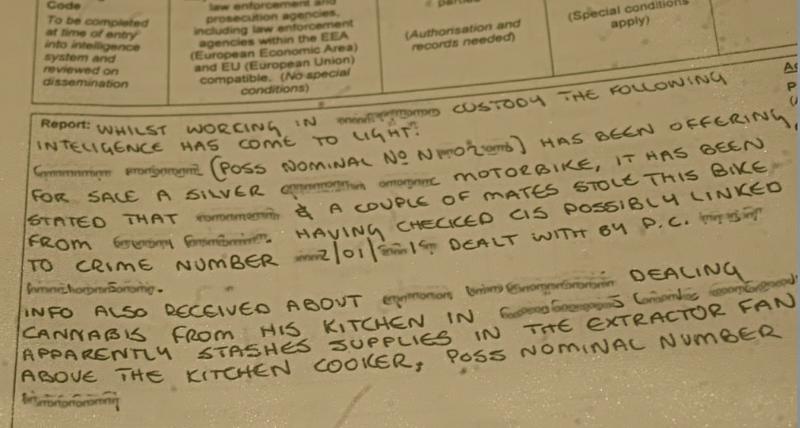 Code
To be completed
at time of entry
into intelligence
system and
reviewed on
dissemination
law enforcement and
prosecution agencies,
including law enforcement
agencies within the EEA
(European Economic Area)
and EU (European Union)
compatible. (No special
conditions)
(Authorisation and
records needed)
(Special conditions
apply)
Report: WHILST WORCING IN CUSTODY THE FOLLOWING
INTELIGENCE HAS COME TO LIGHT:
(POSS NOMINAL No ) HAS BEEN OFFERING,
FOR SALE A SILVER MOTORBIKE, IT HAS BEEN
STATED THAT & A COUPLE OF MATES STOLE THIS BIKE
FROM . HAVING CHECKED CIS POSSIBLY LINKED
TO CRIME NUMBER DEALT WITH BY P.C.
INFO ALSO RECEIVED ABOUT DEALING
CANNABIS FROM HIS KITCHEN IN
APPARENTLY STASHES SUPPLIES IN THE EXTRACTOR FAN
ABOVE THE KITCHEN COOKER, POSS NOMINAL NUMBER